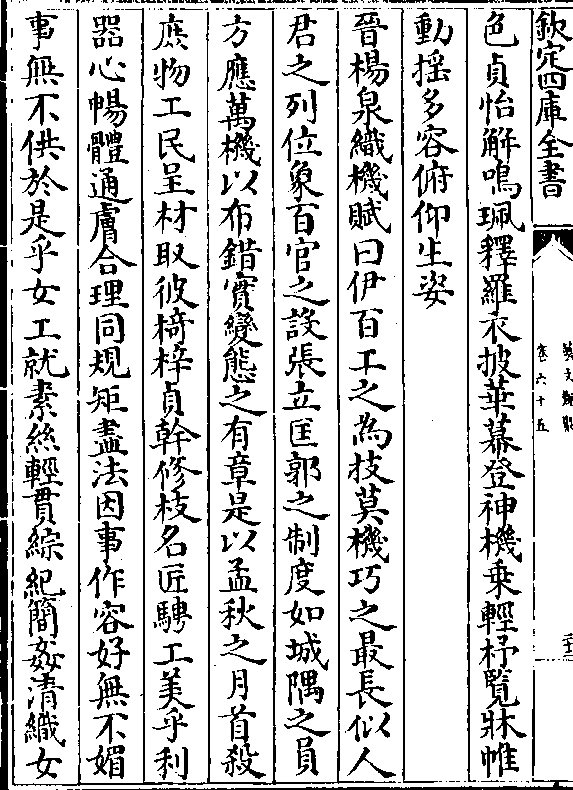 欽定四庫全書
藝文類聚
卷六十五
色貞怡解鳴珮釋羅衣披華幕登神機乗輕杼覽牀帷
動揺多容俯仰生姿
晉楊泉織機賦曰伊百工之為技莫機巧之最長似人
君之列位象百官之設張立匡郭之制度如城隅之員
方應萬機以布錯實變態之有章是以孟秋之月首殺
庶物工民呈材取彼椅梓貞幹修枝名匠騁工美乎利
器心暢體通膚合理同規矩盡法因事作容好無不媚
事無不供於是乎女工就素絲輕貫綜紀簡姦清織女